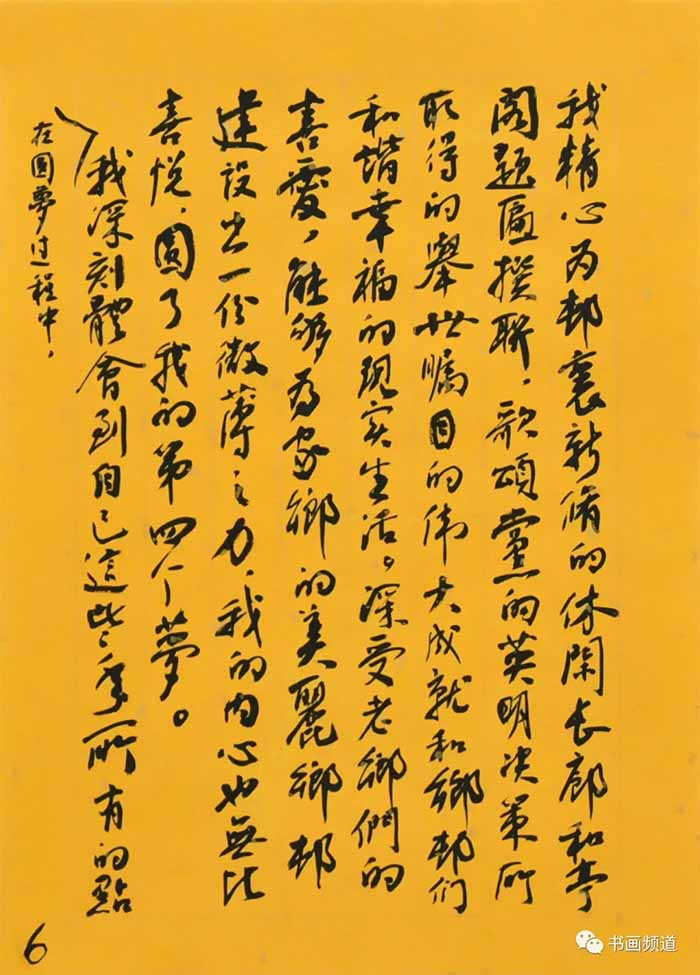 我精心为邨裏新脩的休閑长廊和亭
阁题匾撰联，歌頌黨的英明决策所
取得的舉世瞩目的伟大成就和鄉邨们
和谐幸福的现实生活。深受老鄉們的
喜爱，能够为家鄉的美麗鄉邨
建设出一份微薄之力，我的内心也無比
喜悦，圆了我的第四个夢。
我深刻體會到自己這些年所有的點
在圆夢过程中，
6
书画频道